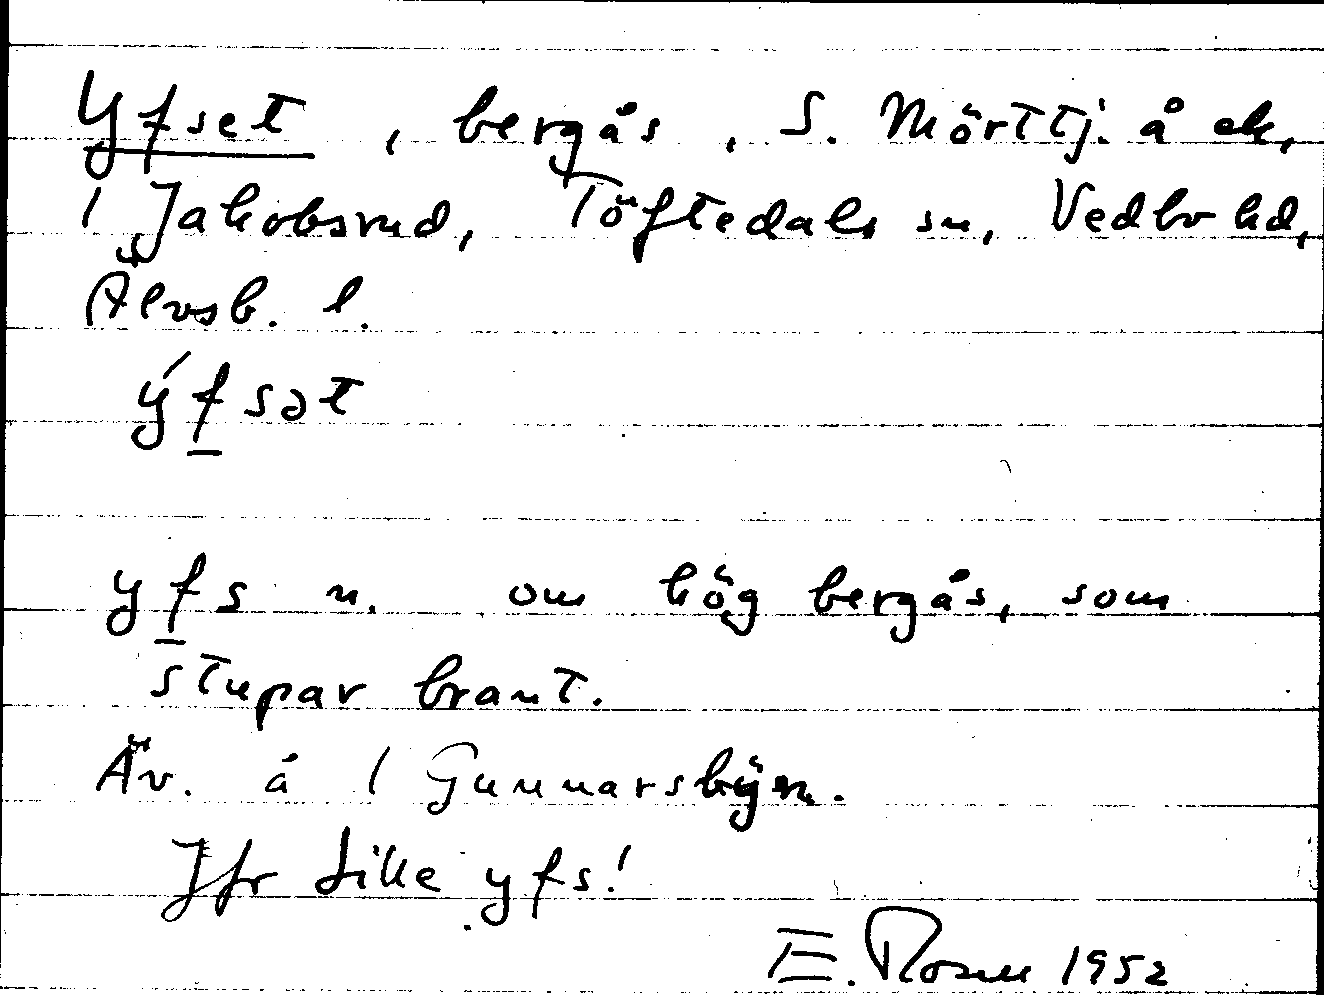 Yfset, bergås, S. Mörttj. å ek,
1 Jakobsrud, Töftedals sn, Vedbo hd,
Älvsb. l.
ýfsət
yfs n. om hög bergås, som
stupar brant.
Äv. å 1 Gunnarsbyn.
Jfr Lille yfs!
E. Rosen 1952